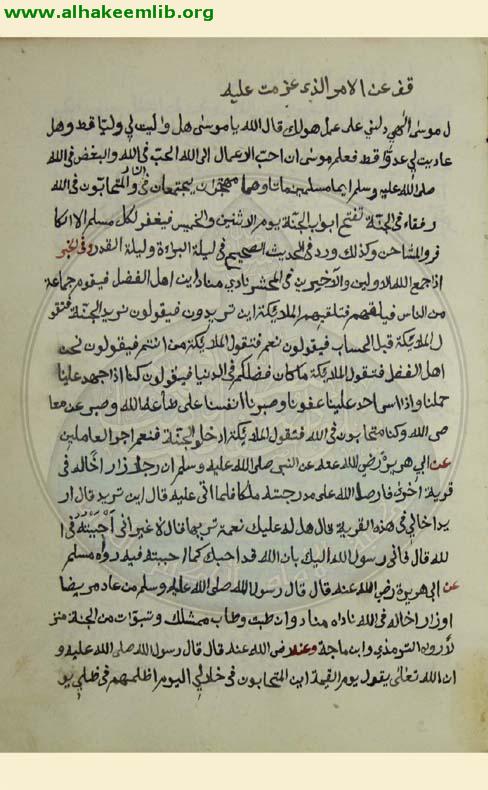 www.alhakeemlib.org
قف عن الامر الذي عزمت عليه
ل موسى الهي دلني على عمل هو لك قال الله يا موسى هل واليت لي وليا قط وهل
عاديت لي عدوا قط فعلم موسى ان احب الاعمال الى الله الحب في الله والبغض في الله
صلى الله عليه وسلم ايما مسلمين ماتا وهما مهتجران يجتمعان في النار والمتحابون في الله
رفقاء في الجنة تفتح ابواب الجنة يوم الاثنين والخميس فيغفر لكل مسلم الا الكا
فر والمشاحن وكذلك ورد في الحديث الصحيح في ليلة البراءة وليلة القدر وفي الخبر
اذا جمع الله الاولين والآخرين في المحشر نادي مناد اين اهل الفضل فيقوم جماعة
من الناس فيلقهم فتلقيهم الملايكة اين تريدون فيقولون نريد الجنة فتقو
ل الملايكة قبل الحساب فيقولون نعم فتقول الملايكة من انتم فيقولون نحن
اهل الفضل فتقول الملايكة ما كان فضلكم في الدنيا فيقولون كنا اذا جهد علينا
حملنا واذا اسى احد علينا عفونا وصبرنا انفسنا على طاعة الله وصبر عن معا
صي الله وكنا متحابون في الله فتقول الملايكة ادخلوا الجنة فنعم اجر العاملين
عن ابي هريرة رضي الله عنه عن النبي صلى الله عليه وسلم ان رجلا زار اخا له في
قرية اخرى فارصد الله على مدرجته ملكا فلما اتى عليه قال اين تريد قال ار
يد اخا لي في هذه القرية قال هل له عليك نعمة تربها قال لا غير اني احببته في ا
لله قال فاني رسول الله اليك بان الله قد احبك كما احببته فيه رواه مسلم
عن ابي هريرة رضي الله عنه قال قال رسول الله صلى الله عليه وسلم من عاد مريضا
او زار اخا له في الله ناداه مناد وان طبت وطاب ممشاك وتبوات من الجنة منز
لا رواه الترمذي وابن ماجة وعنه رضى الله عنه قال قال رسول الله صلى الله عليه و
ان الله تعالى يقول يوم القيمة اين المتحابون في جلالي اليوم اظلهم في ظلي يو